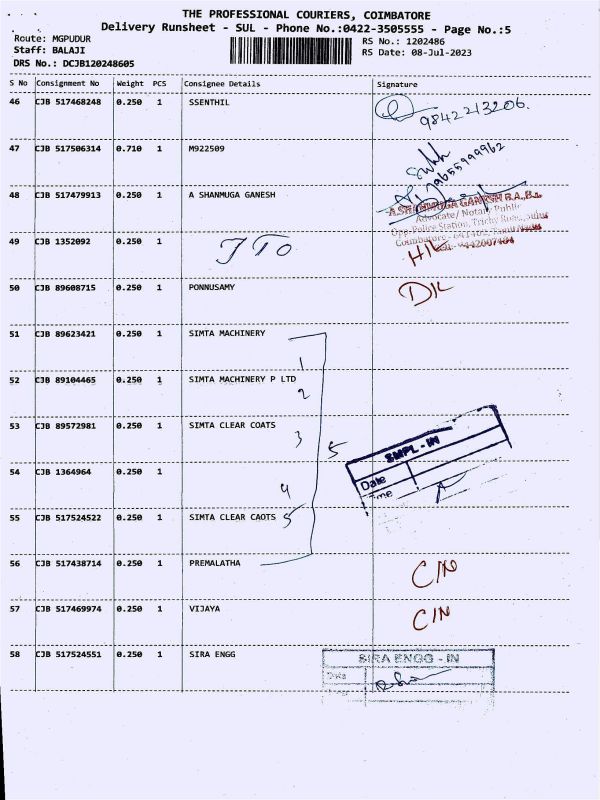 THE PROFESSIONAL COURIERS, COIMBATORE
Delivery Runsheet - SUL - Phone No.:0422-3505555 - Page No.:5
Route: MGPUDUR
RS No.: 1202486
Staff: BALAJI
RS Date: 08-Jul-2023
DRS No.: DCJB120248605
S No Consignment No Weight PCS Consignee Details Signature
46 CJB 517468248 0.250 1 SSENTHIL
9842213206.
47 CJB 517506314 0.710 1 M922509
9655999962
48 CJB 517479913 0.250 1 A SHANMUGA GANESH
A.SHANMUGA GANESH B.A.,B.L.
Advocate/ Notary Public
Opp. Police Station, Trichy Road, Sulur
Coimbatore - 641 402, Tamil Nadu
49 CJB 1352092 0.250 1
50 CJB 89608715 0.250 1 PONNUSAMY
D/L
51 CJB 89623421 0.250 1 SIMTA MACHINERY
1
52 CJB 89104465 0.250 1 SIMTA MACHINERY P LTD
2
53 CJB 89572981 0.250 1 SIMTA CLEAR COATS
3
5
SMPL - IN
Date
Time
54 CJB 1364964 0.250 1
4
55 CJB 517524522 0.250 1 SIMTA CLEAR CAOTS
5
56 CJB 517438714 0.250 1 PREMALATHA
C/N
57 CJB 517469974 0.250 1 VIJAYA
C/N
58 CJB 517524551 0.250 1 SIRA ENGG
SIRA ENGG - IN
Date